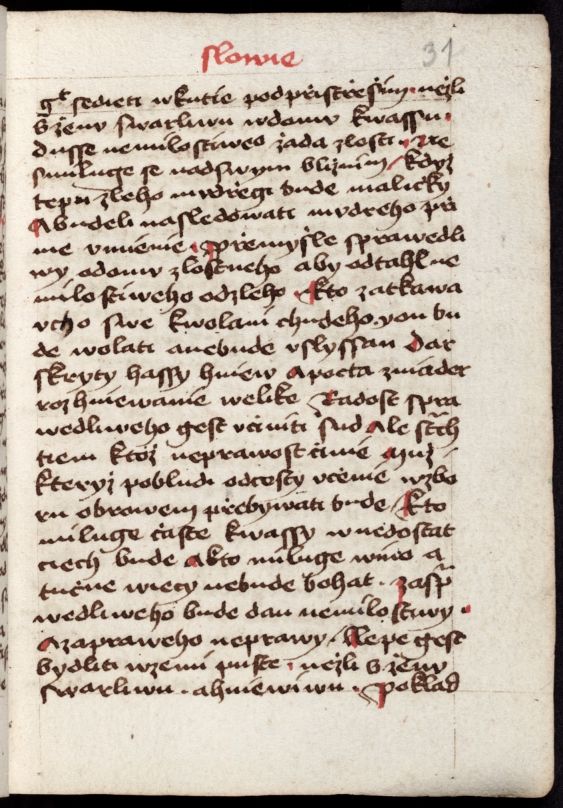 slowie
31
gt sedieti wkutie podpristřessim. nežli
s ženu swarliwu wdomu kwassu.
dusse nemilostiweo žada zlosti. Ne
smiluge se nadswym bližnim Kdyz
tepu zleho mudřegi bude maličky
A budeli nasledowati mudreho při
me vmienie. přemyšle sprawedli
wy odomu zlostneho aby odtahl ne
milostiweho odzleho. Kto zatkawa
vcho swe kwolani chudeho. yon bu
de wolati anebude vslyssan Dar
skryty hassy hniew A pocta znader
rozhniewanie welike Radost spra
wedliweho gest včiniti sud Ale strach
tiem ktož neprawost činie Muž
kteryz pobludi odcesty včenie wzbo
ru obrowem přebywati bude. Kto
miluge časte kwassy wnedostat
ciech bude Akto miluge wino a
tučne wiecy nebude bohat. zaspra
wedliweho bude dan nemilostiwy.
Azapraweho neprawy. Lepe gest
bydliti wzemi puste. nežli s ženu
swarliwu. ahniewiwu. Poklad